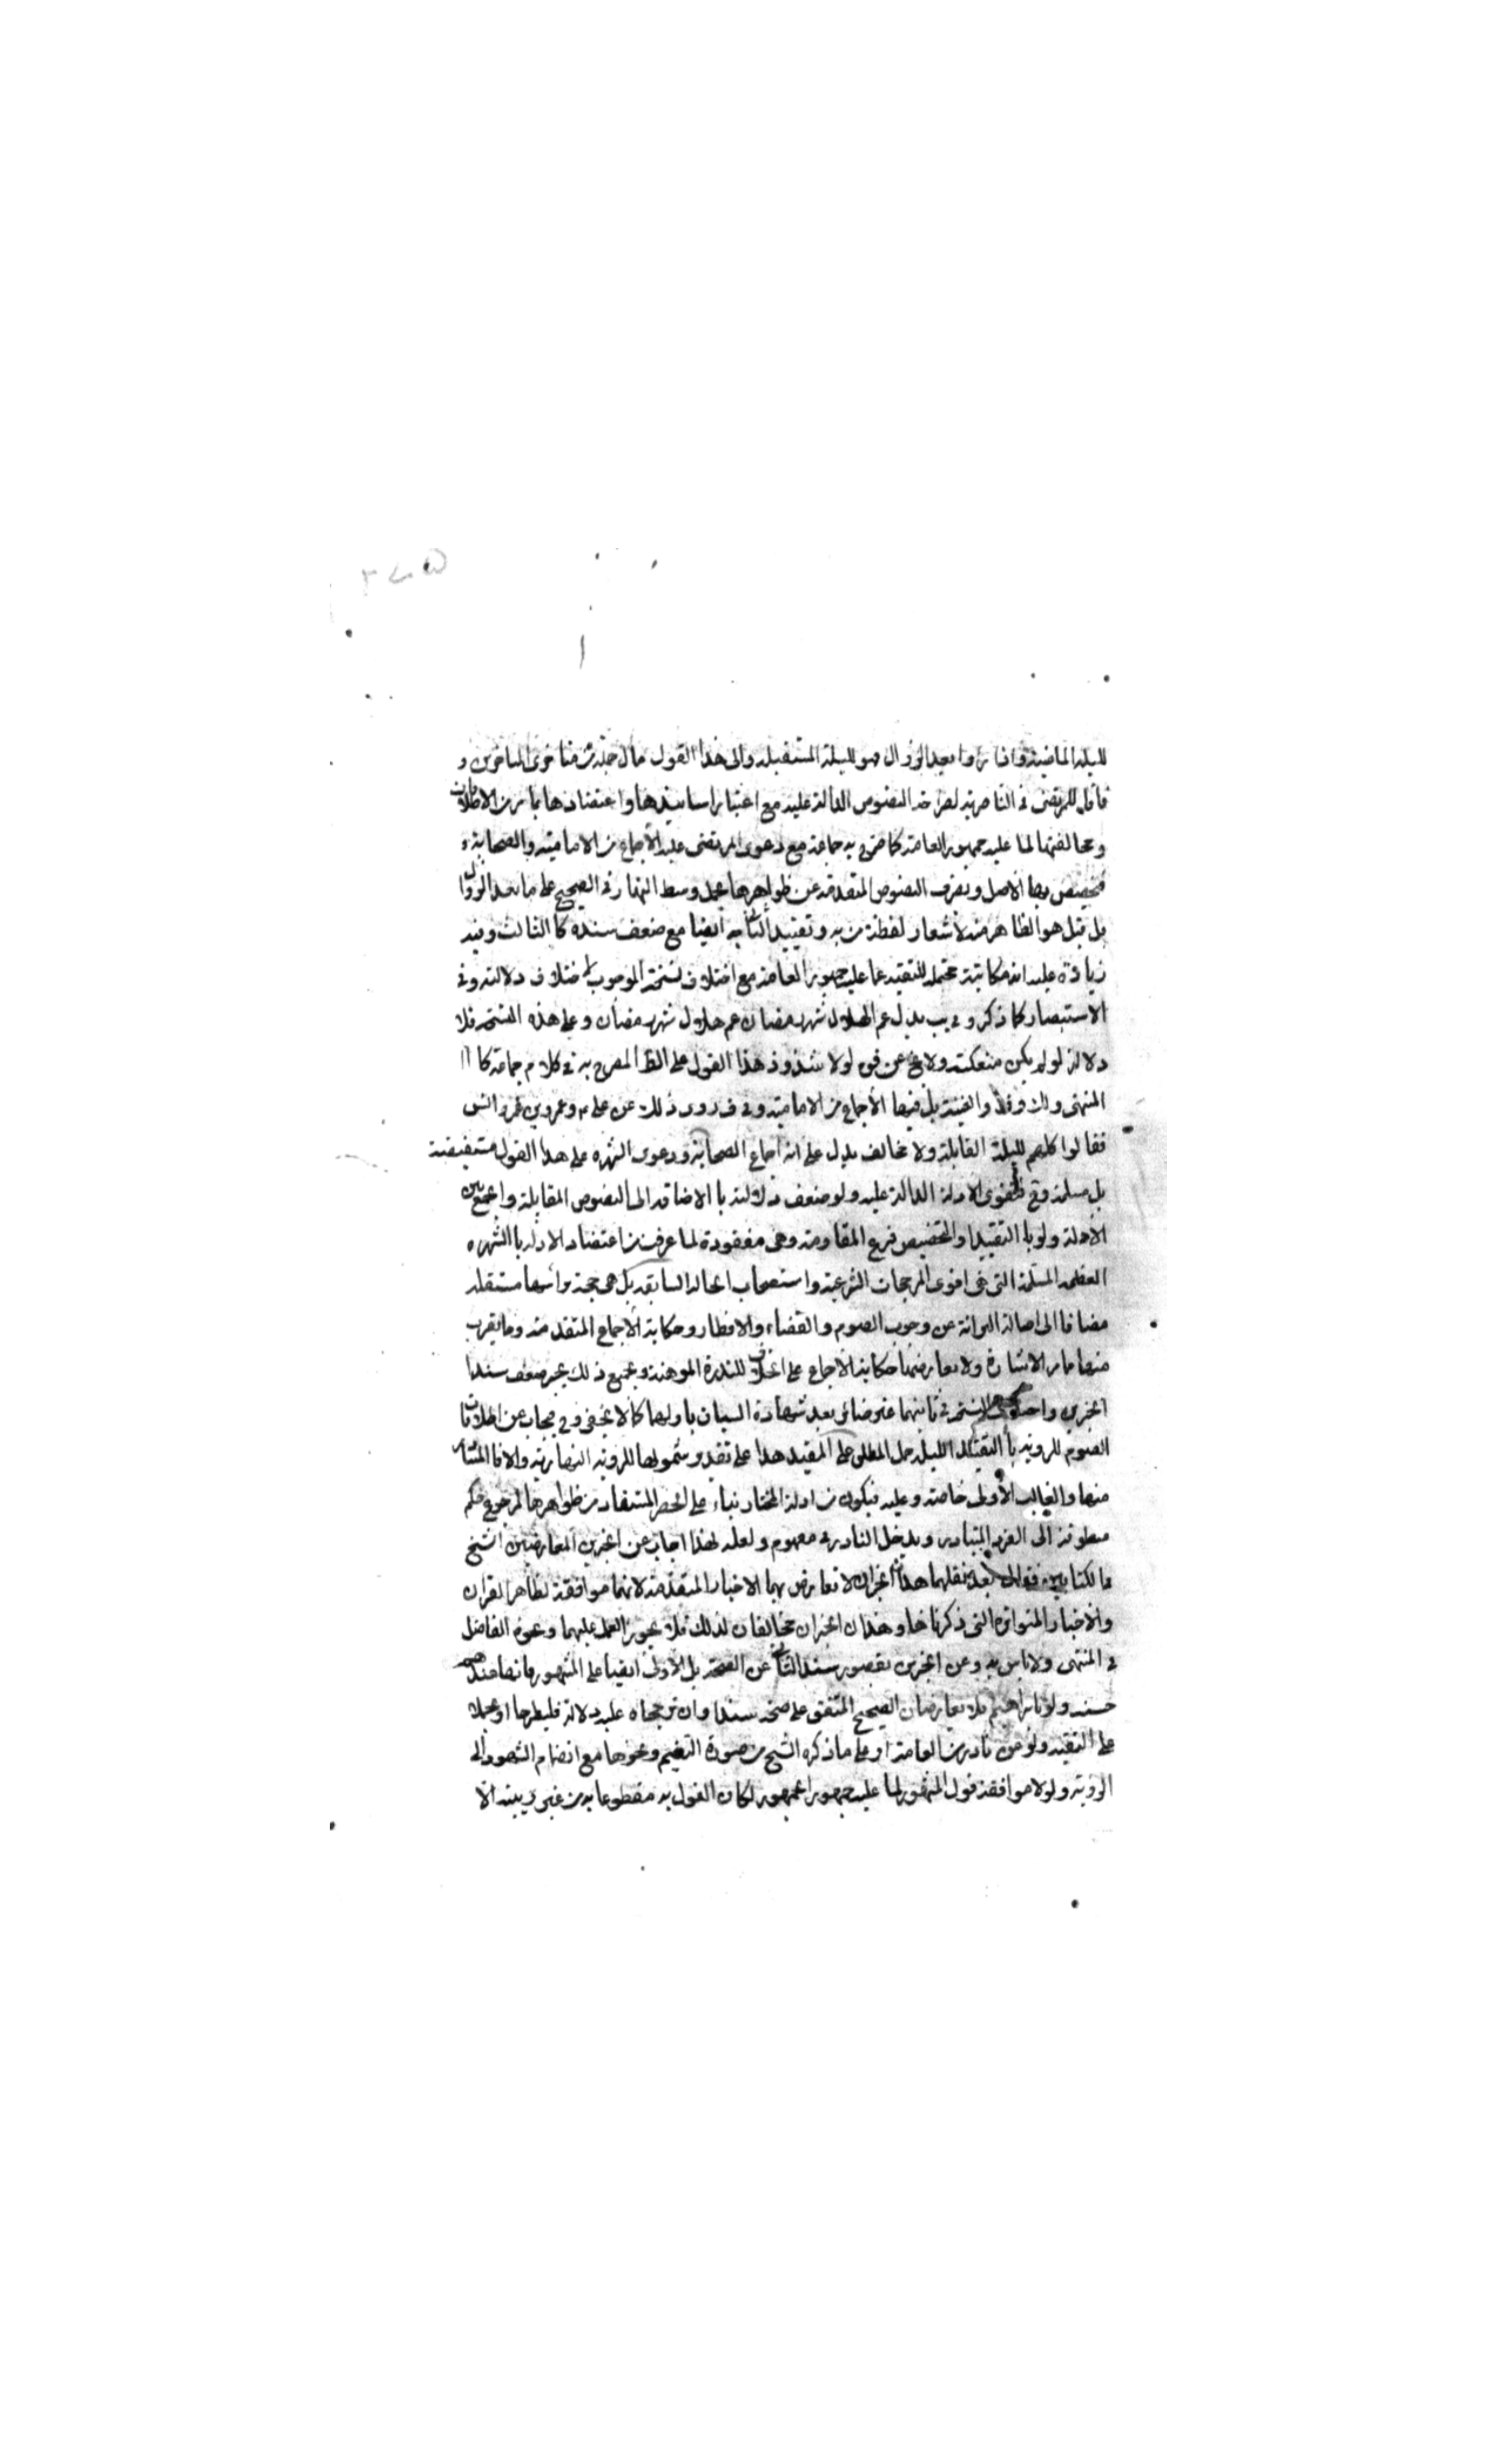 لليلة الماضية واذا راوا بعد الزوال فهو لليلة المستقبلة والى هذا القول مال جملة من متاخرى المتاخرين و
فاقا للمرتضى في الناصرية لصراحة النصوص الدالة عليه مع اعتبار اسانيدها واعتضادها بما مر من الاطلاقات
ومخالفتها لما عليه جمهور العامة كما صرح به جماعة مع دعوى المرتضى عليه الاجماع من الامامية والصحابة و
تخصيص بها الاصل ويصرف النصوص المتقدمة عن ظواهرها بحمل وسط النهار في الصحيح على ما بعد الزوال
بل قيل هو الظاهر منه لاشعار لفظة من به وتقييد الثاني به ايضا مع ضعف سنده كالثالث وفيه
زيادة عليه انه مكاتبة محتملة للتقية عما عليه جمهور العامة مع اختلاف نسخته الموجوب لاختلاف دلالته وفي
الاستبصار كما ذكر وفي يب بدل غم الهلال شهر رمضان غم هلال شهر رمضان وعلى هذه النسخة فلا
دلالة له لو لم يكن منعكسة ولا يخ عن قوة لولا شذوذ هذا القول على الظ المصرح به في كلام جماعة كا
المنتهى والغنية بل فيها الاجماع من الامامية وفي ف روى ذلك عن علي ع وعمر وبن عمر وانس
فقالوا كلهم لليلة القابلة ولا مخالف يدل على انه اجماع الصحابة ودعوى الشهرة على هذا القول مستفيضة
بل مسلمة وح فتقوى الادلة الدالة عليه ولو ضعف دلالته بالاضافة الى النصوص المقابلة والجمع بين
الادلة ولو با التقييد والتخصيص فرع المقاومة وهي مفقودة لما عرفت من اعتضاد الادلة بالشهرة
العظيمة المسلمة التى هى اقوى المرجحات الشرعية واستصحاب الحالة السابقة بل هى حجة براسها مستقلة
مضافا الى اصالة البرائة عن وجوب الصوم والقضاء والافطار وحكاية الاجماع المتقدمة وما يقرب
منها مار الاشارة ولا يعارضها حكاية الاجماع على الخلاف للندرة الموهنة وبجميع ذلك يجبر ضعف سندا
الخبرين واختلاف النسخة في ثانيهما غير ضائر بعد شهادة السياق باولهما كما لا يخفى وفي يجاب عن اطلاقات
الصوم للروية با التقييد الليلة حمل المطلق على المقيد هذا على تقدير شمولها للروية النهارية والا فالمتبادر
منها والغالب الاولى خاصة وعليه فيكون من ادلة المختار بناء على الحصر المستفاد من ظواهرها لرجوع حكم
منطوقه الى الفرد المتبادر ويدخل النادر في مفهومه ولعله لهذا اجاب عن الخبرين المعارضين الشيخ
في الكتابين فقال بعد نقلهما هذان الخبران لا تعارض بهما الاخبار المتقدمة لانها موافقة لظاهر القران
والاخبار المتواترة التى ذكرناها وهذان الخبران مخالفان لذلك فلا يجوز العمل عليهما ونحوه الفاضل
في المنتهى ولا باس به وعن الخبرين بقصور سند الثاني عن الصحة بل الاولى ايضا على المشهور فانها عندهم
حسنة ولو بابراهيم فلا يعارضان الصحيح المتفق على صحته سندا وان رجحاه عليه دلالة فليطرحا او يحملا
على التقية ولو عن نادر من العامة او على ما ذكره الشيخ من صورة التغيم ونحوها مع انضمام الشهود الى
الروية ولولا موافقة قول المشهور لما عليه جمهور الجمهور لكان القول به مقطوعا به من غير ريبة الا